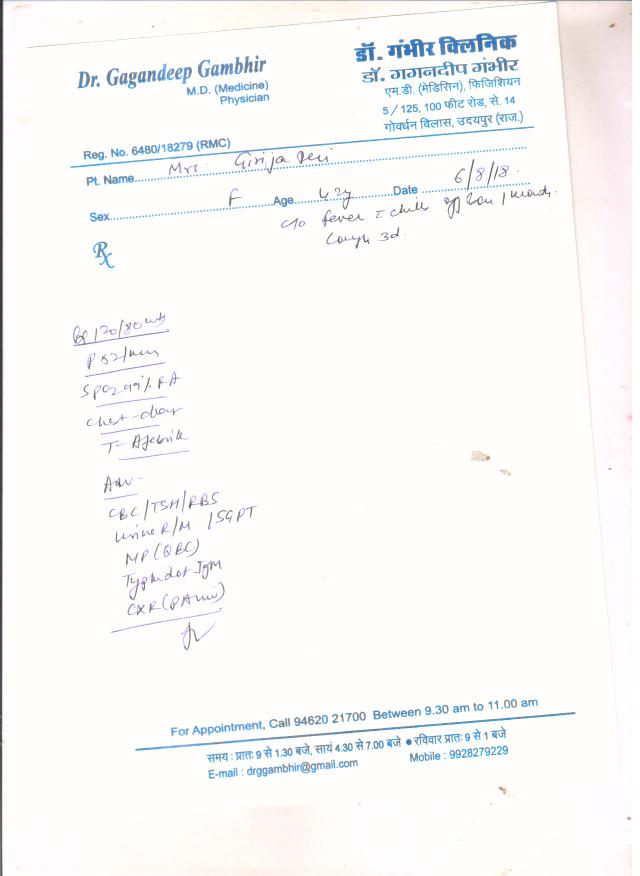 Dr. Gagandeep Gambhir
M.D. (Medicine)
Physician
Reg. No. 6480/18279 (RMC)
डॉ. गंभीर क्लिनिक
डॉ. गगनदीप गंभीर
एम.डी. (मेडिसिन), फिजिशियन
5 / 125, 100 फीट रोड, से. 14
गोवर्धन विलास, उदयपुर (राज.)
Pt. Name Mrs Girija Devi
Sex F Age 42y Date 6/8/18.
c/o fever c chill 1 month
Cough 3d.
Rx
BP 120/80
P 82/min
SpO2 99% RA
Chest - clear
T - Afebrile
Adv -
CBC/TSH/RBS
Urine R/M /SGPT
MP (QBC)
Typhidot IgM
CXR (PA view)
For Appointment, Call 94620 21700 Between 9.30 am to 11.00 am
समय : प्रातः 9 से 1.30 बजे, सायं 4.30 से 7.00 बजे ● रविवार प्रातः 9 से 1 बजे
E-mail : drggambhir@gmail.com Mobile : 9928279229